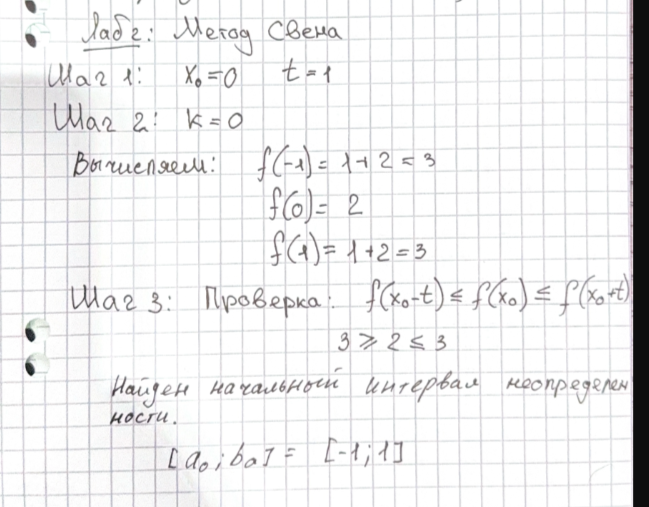 Лаб 2: Метод Свена
Шаг 1: x₀=0 t=1
Шаг 2: k=0
Вычисляем: f(-1)= 1+2=3
f(0)= 2
f(1)= 1+2=3
Шаг 3: Проверка: f(x₀-t) ≤ f(x₀) ≤ f(x₀+t)
3 ≥ 2 ≤ 3
Найден начальный интервал неопределен
ности.
[a₀; b₀] = [-1; 1]